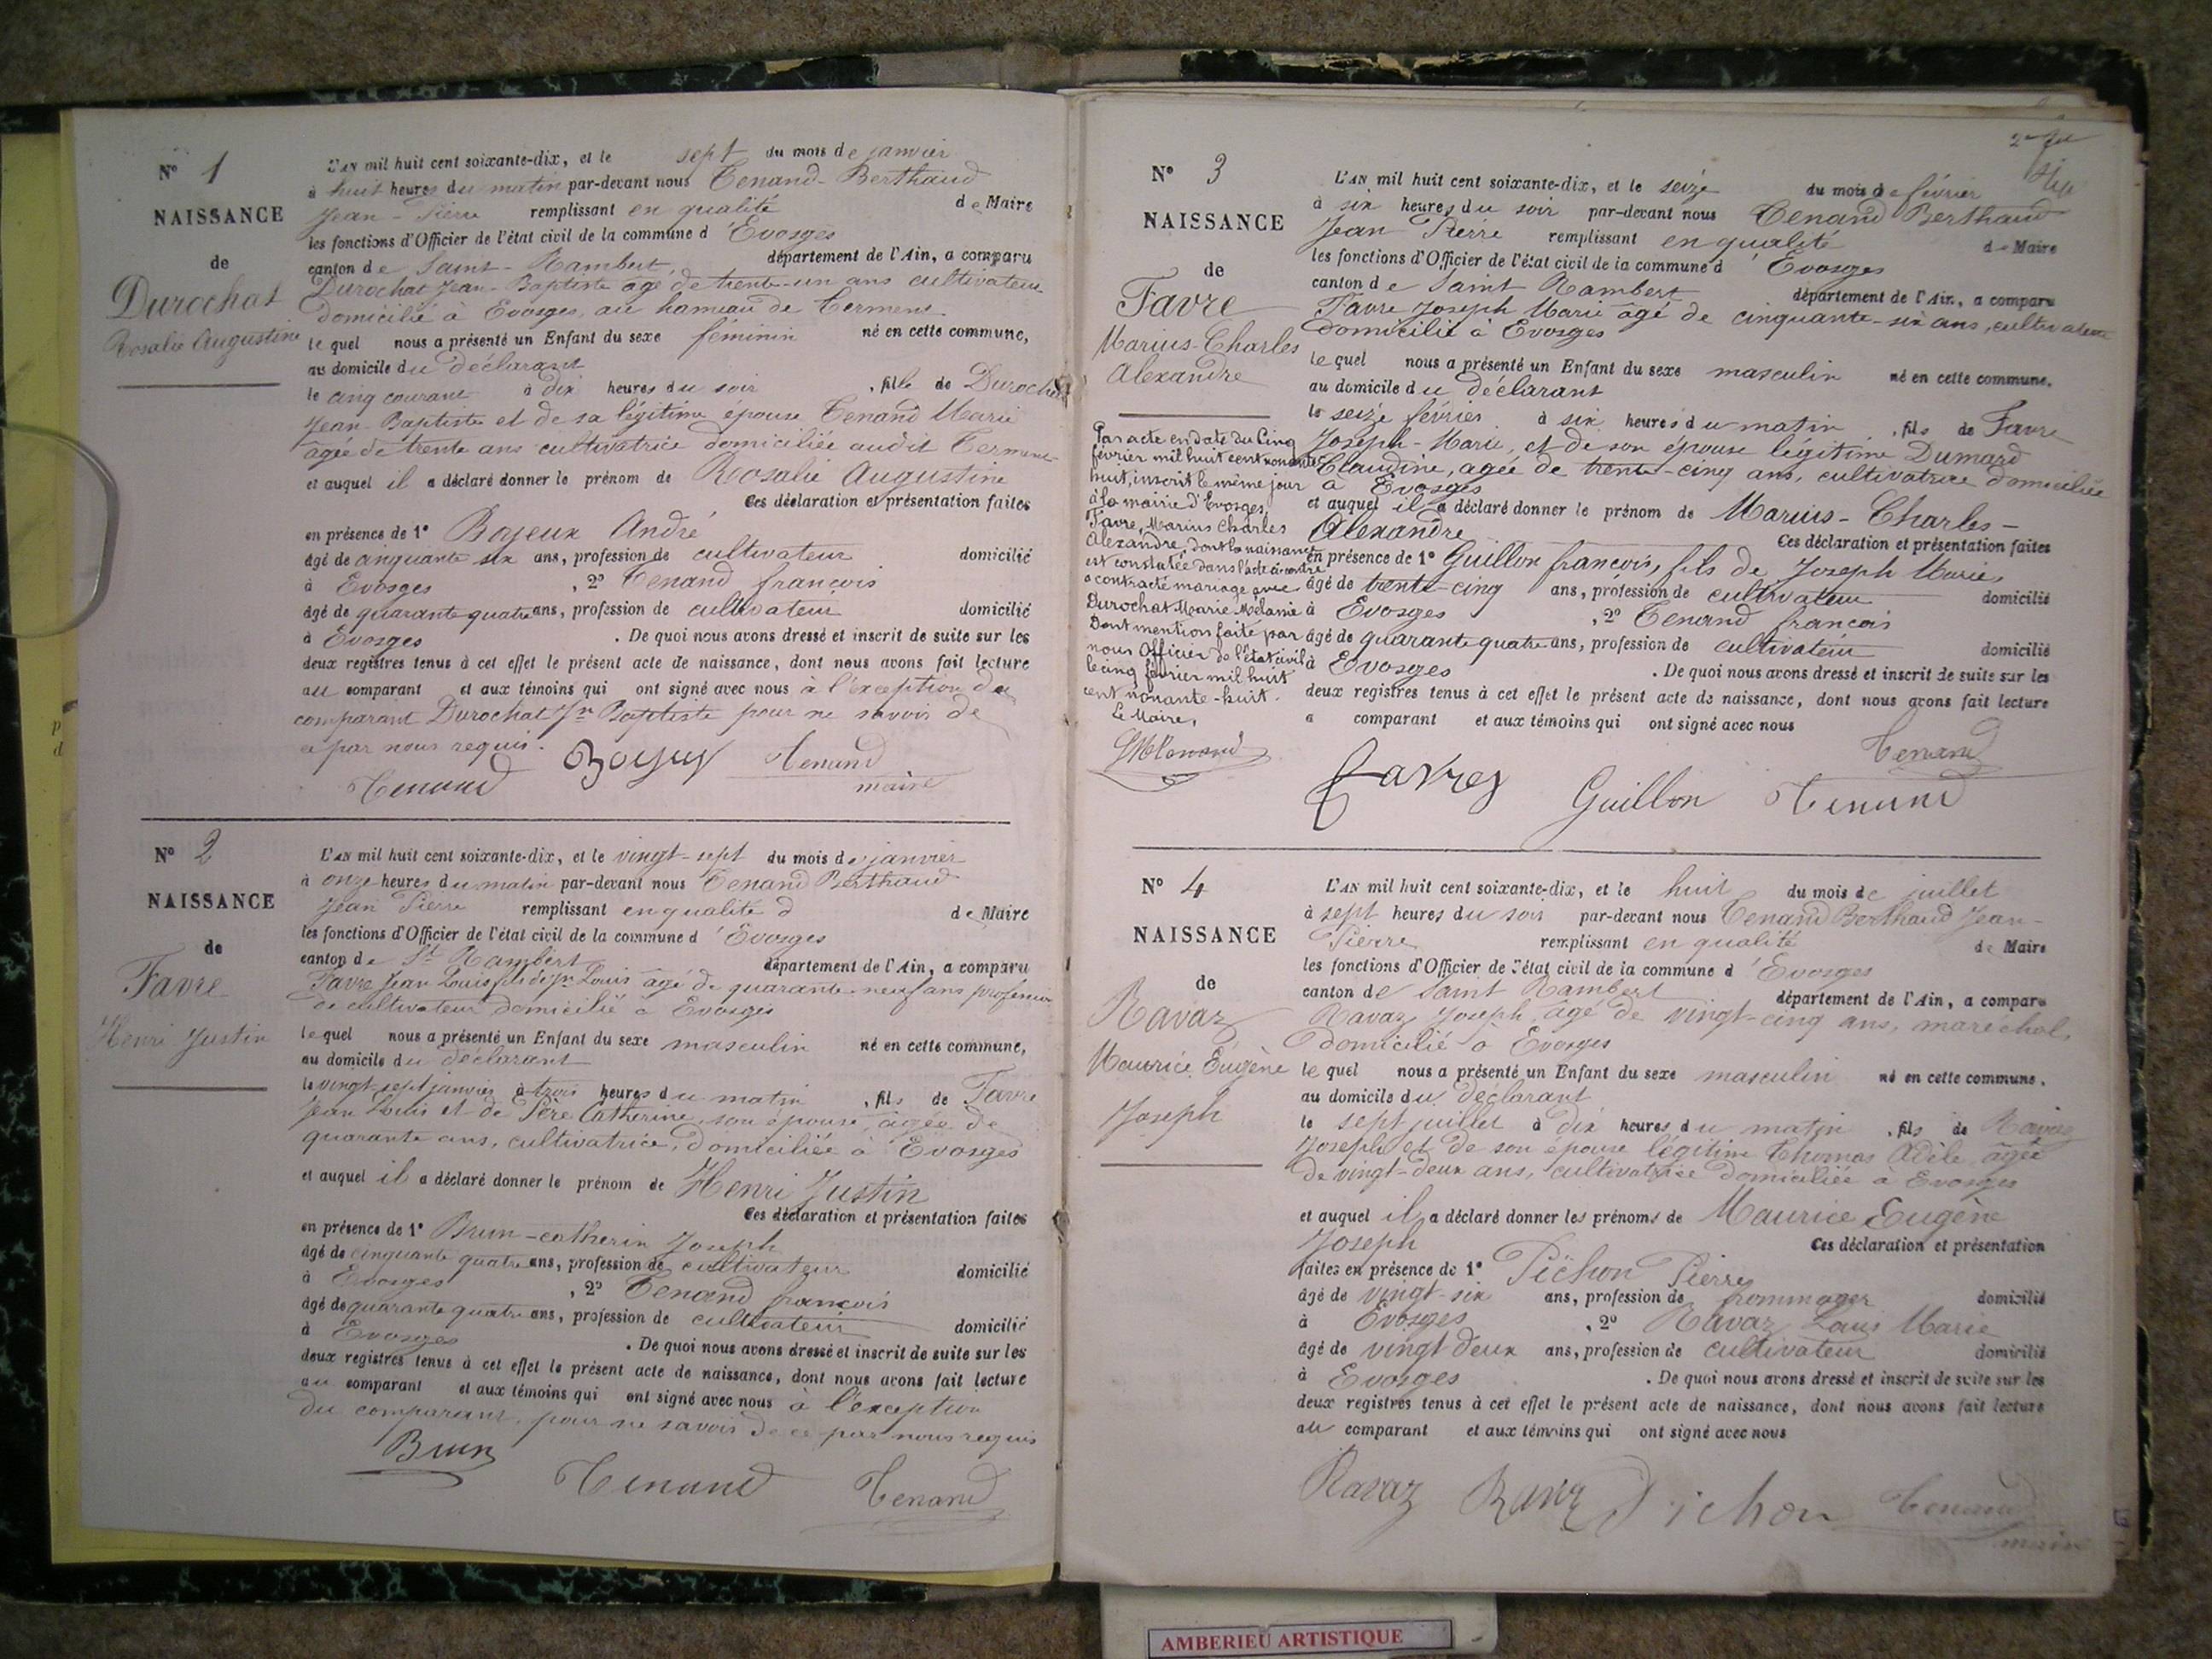 N° 1
NAISSANCE
de
Durochat
Rosalie Augustine
L'AN mil huit cent soixante-dix, et le sept du mois de janvier
à huit heures du matin par-devant nous Tenand-Berthaud
Jean-Pierre remplissant en qualité de Maire
les fonctions d'Officier de l'état civil de la commune d'Evosges
canton de Saint-Rambert département de l'Ain, a comparu
Durochat Jean-Baptiste âgé de trente-un ans cultivateur
domicilié à Evosges, au hameau de
lequel nous a présenté un Enfant du sexe féminin né en cette commune,
au domicile du déclarant
le cinq courant à dix heures du soir, fille de Durochat
Jean-Baptiste et de sa légitime épouse Tenand Marie
âgée de trente ans cultivatrice domiciliée audit
et auquel il a déclaré donner le prénom de Rosalie Augustine
Ces déclaration et présentation faites
en présence de 1° Bojeux André
âgé de cinquante six ans, profession de cultivateur domicilié
à Evosges, 2° Tenand françois
âgé de quarante quatre ans, profession de cultivateur domicilié
à Evosges. De quoi nous avons dressé et inscrit de suite sur les
deux registres tenus à cet effet le présent acte de naissance, dont nous avons fait lecture
au comparant et aux témoins qui ont signé avec nous à l'exception du
comparant Durochat Jn Baptiste pour ne savoir de
ce par nous requis.
Tenand Tenand
maire
N° 2
NAISSANCE
de
Favre
Henri Justin
L'AN mil huit cent soixante-dix, et le vingt-sept du mois de janvier
à onze heures du matin par-devant nous Tenand Berthaud
Jean Pierre remplissant en qualité d de Maire
les fonctions d'Officier de l'état civil de la commune d'Evosges
canton de St Rambert département de l'Ain, a comparu
Favre Jean Louis fils de Jn Louis âgé de quarante-neuf ans profession
de cultivateur domicilié à Evosges
lequel nous a présenté un Enfant du sexe masculin né en cette commune,
au domicile du déclarant
le vingt-sept janvier à trois heures du matin, fils de Favre
Jean Louis et de Père Catherine, son épouse, âgée de
quarante ans, cultivatrice, domiciliée à Evosges
et auquel il a déclaré donner le prénom de Henri Justin
Ces déclaration et présentation faites
en présence de 1° Brun-catherin Joseph
âgé de cinquante quatre ans, profession de cultivateur domicilié
à Evosges, 2° Tenand françois
âgé de quarante quatre ans, profession de cultivateur domicilié
à Evosges. De quoi nous avons dressé et inscrit de suite sur les
deux registres tenus à cet effet le présent acte de naissance, dont nous avons fait lecture
au comparant et aux témoins qui ont signé avec nous à l'exception
du comparant, pour ne savoir de ce par nous requis
Brun
Tenand Tenand
N° 3
NAISSANCE
de
Favre
Marius-Charles
Alexandre
Par acte en date du Cinq
février mil huit cent nonante
huit, inscrit le même jour
à la mairie d'Evosges,
Favre, Marius Charles
Alexandre, dont la naissance
est constatée dans l'acte ci-contre
a contracté mariage avec
Durochat Marie Mélanie
Dont mention faite par
nous Officier de l'état civil
le cinq février mil huit
cent nonante-huit.
Le Maire,
L'AN mil huit cent soixante-dix, et le seize du mois de février
à six heures du soir par-devant nous Tenand Berthaud
Jean Pierre remplissant en qualité de Maire
les fonctions d'Officier de l'état civil de la commune d'Evosges
canton de Saint Rambert département de l'Ain, a comparu
Favre Joseph Marie âgé de cinquante-six ans, cultivateur
domicilié à Evosges
lequel nous a présenté un Enfant du sexe masculin né en cette commune,
au domicile du déclarant
le seize février à six heures du matin, fils de Favre
Joseph-Marie, et de son épouse légitime Dumard
Claudine, agée de trente-cinq ans, cultivatrice domiciliée
à Evosges
et auquel il a déclaré donner le prénom de Marius-Charles-
Alexandre Ces déclaration et présentation faites
en présence de 1° Guillon françois, fils de Joseph Marie,
âgé de trente-cinq ans, profession de cultivateur domicilié
à Evosges, 2° Tenand françois
âgé de quarante quatre ans, profession de cultivateur domicilié
à Evosges. De quoi nous avons dressé et inscrit de suite sur les
deux registres tenus à cet effet le présent acte de naissance, dont nous avons fait lecture
a comparant et aux témoins qui ont signé avec nous
Tenand
Favres Guillon Tenand
N° 4
NAISSANCE
de
Ravaz
Maurice Eugène
Joseph
L'AN mil huit cent soixante-dix, et le huit du mois de juillet
à sept heures du soir par-devant nous Tenand Berthaud Jean-
Pierre remplissant en qualité de Maire
les fonctions d'Officier de l'état civil de la commune d'Evosges
canton de Saint Rambert département de l'Ain, a comparu
Ravaz Joseph, âgé de vingt-cinq ans, marechal,
domicilié à Evosges
lequel nous a présenté un Enfant du sexe masculin né en cette commune,
au domicile du déclarant
le sept juillet à dix heures du matin, fils de Ravaz
Joseph et de son épouse légitime Thomas Adèle âgée
de vingt-deux ans, cultivatrice domiciliée à Evosges
et auquel il a déclaré donner les prénoms de Maurice Eugène
Joseph Ces déclaration et présentation
faites en présence de 1° Pichon Pierre
âgé de vingt-six ans, profession de frommager domicilié
à Evosges, 2° Ravaz Louis Marie
âgé de vingt deux ans, profession de cultivateur domicilié
à Evosges. De quoi nous avons dressé et inscrit de suite sur les
deux registres tenus à cet effet le présent acte de naissance, dont nous avons fait lecture
au comparant et aux témoins qui ont signé avec nous
Ravaz Ravaz Pichon Tenand
maire
AMBERIEU ARTISTIQUE